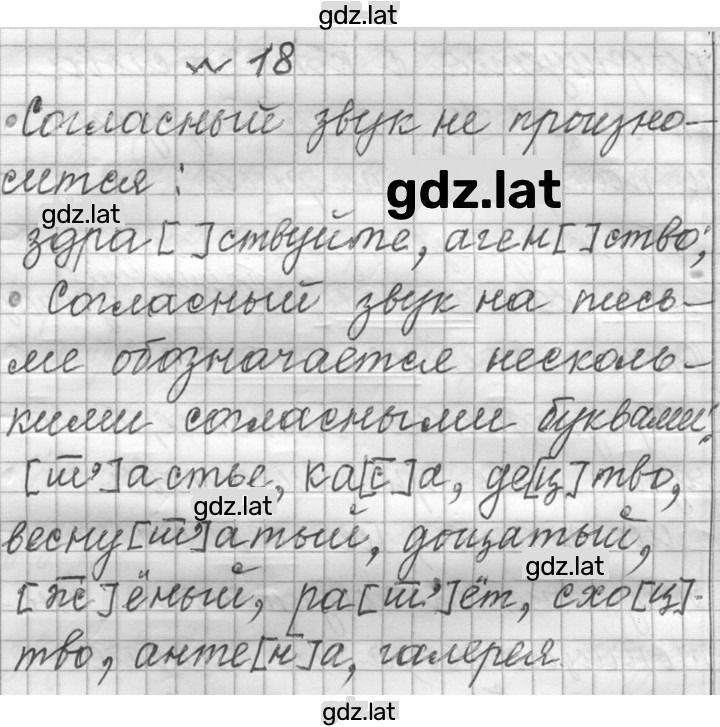 gdz.lat
№ 18
• Согласный звук не произно-
сится:
gdz.lat
gdz.lat
здра[ ]ствуйте, аген[ ]ство;
• Согласный звук на пись-
ме обозначается несколь-
кими согласными буквами:
[ш̅']астье, ка[с̅]а, де[ц]тво,
gdz.lat
весну[ш̅']атый, дощатый,
gdz.lat
[жс]ёный, ра[ш̅']ёт, схо[ц]-
тво, анте[н]а, галерея.
gdz.lat